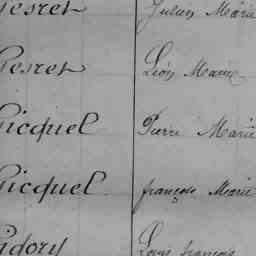 Pesret Julien Marie
Pesret Léon Marie
Picquel Pierre Marie
Picquel françois Marie
Pidory Louis françois